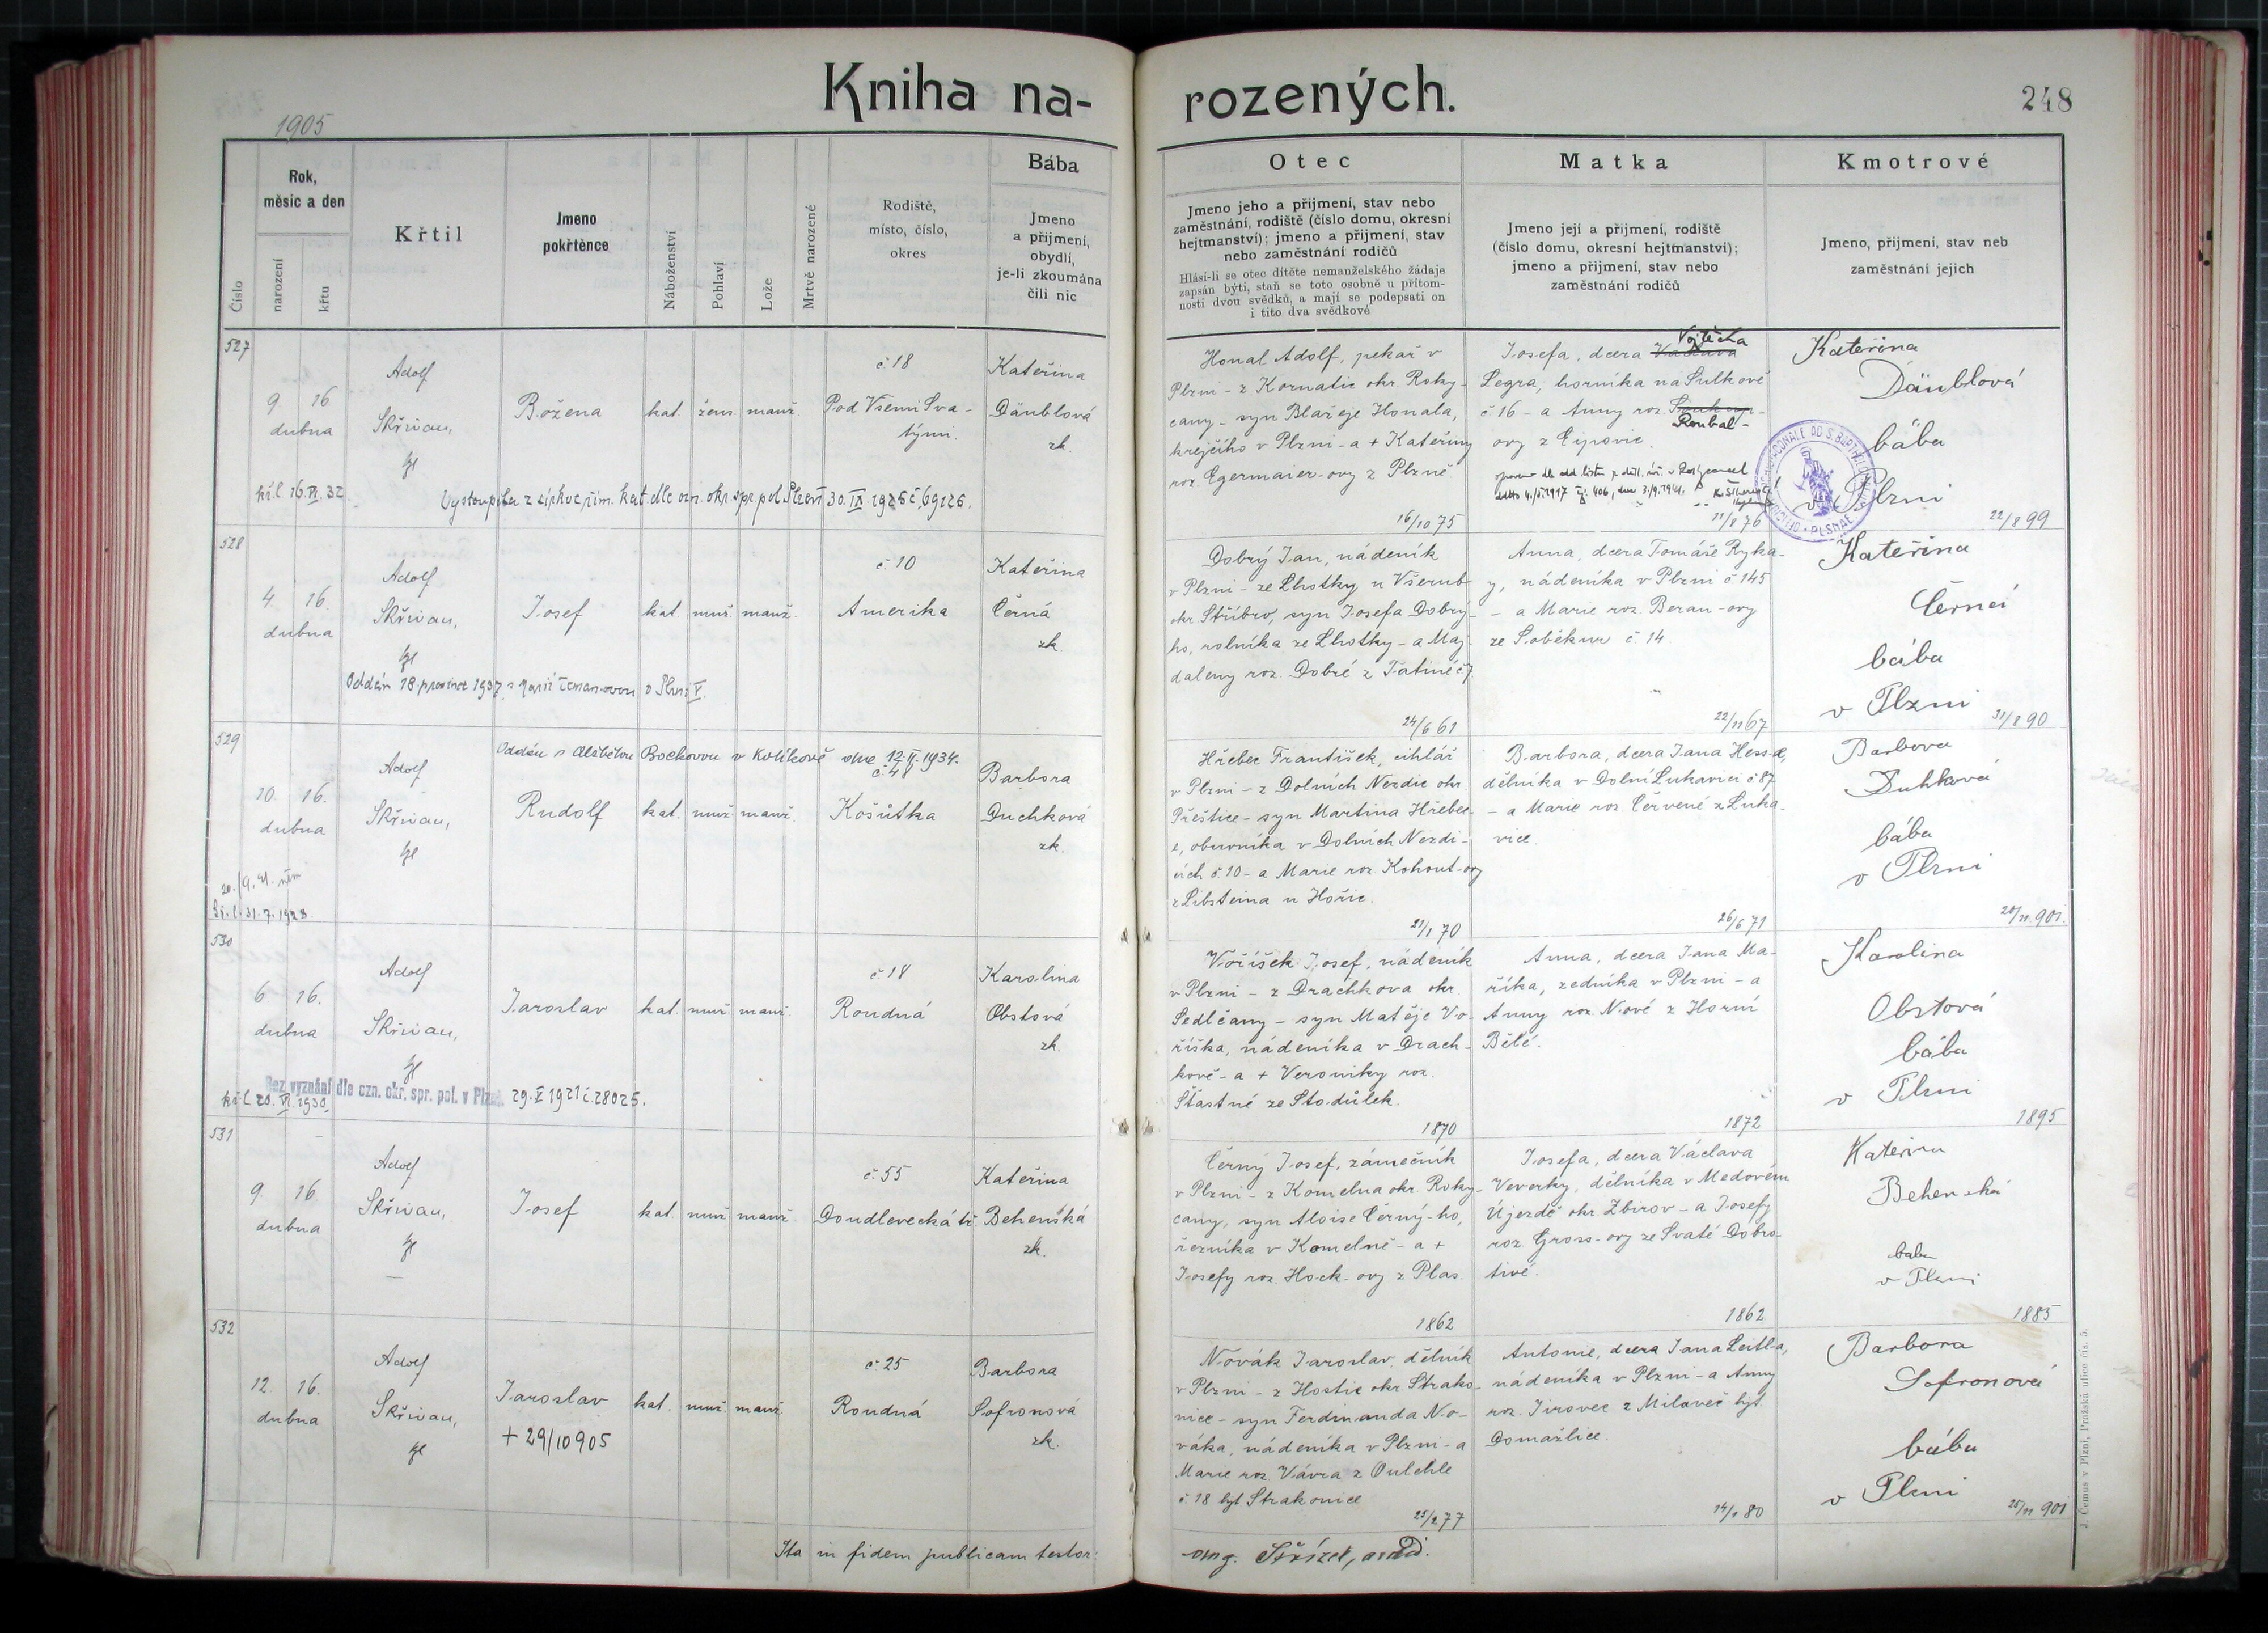 Kniha na-
rozených.
248
1905
Číslo
Rok,
měsíc a den
narození
křtu
Křtil
Jmeno
pokřtěnce
Náboženství
Pohlaví
Lože
Mrtvě narozené
Rodiště,
místo, číslo,
okres
Bába
Jmeno
a přijmení,
obydlí,
je-li zkoumána
čili nic
Otec
Jmeno jeho a přijmení, stav nebo
zaměstnání, rodiště (číslo domu, okresní
hejtmanství); jmeno a přijmení, stav
nebo zaměstnání rodičů
Hlásí-li se otec dítěte nemanželského žádaje
zapsán býti, staň se toto osobně u přítom-
nosti dvou svědků, a mají se podepsati on
i tito dva svědkové
Matka
Jmeno její a přijmení, rodiště
(číslo domu, okresní hejtmanství);
jmeno a přijmení, stav nebo
zaměstnání rodičů
Kmotrové
Jmeno, přijmení, stav neb
zaměstnání jejich
527
9. 16.
dubna
Adolf
Skřivan,
Božena
kat. žens. manž.
č. 18
Pod Všemi Sva-
tými.
Kateřina
Däublová
zk.
kř.l. 16.VI.32
Vystoupila z církve řím. kat. dle ozn. okr. spr. pol. Plzeň 30.IX.1925 č. 69126.
Honal Adolf, pekař v
Plzni - z Kornatic okr. Roky-
cany - syn Blažeje Honala,
krejčího v Plzni - a + Kateřiny
roz. Egermaier-ovy z Plzně
16/10 75
Vojtěcha
Josefa, dcera Václava
Legra, horníka na Sulkově
č 16 - a Anny roz.
Roubal-
ovy z Lipovic.
11/8 76
Kateřina
Däublová
bába
v Plzni
22/8 99
528
4. 16.
dubna
Adolf
Skřivan,
Josef
kat. muž. manž.
č. 10
Amerika
Kateřina
Černá
zk.
Oddán 18. prosince 1937 s Marií Zemanovou v Plzni V.
Dobrý Jan, nádeník
v Plzni - ze Lhotky u Všerub
okr. Stříbro, syn Josefa Dobrý-
ho, rolníka ze Lhotky - a Maj-
daleny roz. Dobré z Tatiné č 7.
24/6 61
Anna, dcera Tomáše Ryka-
y, nádeníka v Plzni č 145
- a Marie roz. Beran-ovy
ze Soběkur č 14.
22/11 67
Kateřina
Černá
bába
v Plzni
31/8 90
529
Oddán s Alžbětou Bočkovou v Kolíkově dne 12.II.1934.
10. 16.
dubna
Adolf
Skřivan,
Rudolf
kat. muž. manž.
č. 48
Košůtka
Barbora
Duchková
zk.
20./9. 41.
kř.l. 31.7.1928.
Hřebec František, cihlář
v Plzni - z Dolních Nezdic okr.
Přeštice - syn Martina Hřebec-
e, obuvníka v Dolních Nezdi-
cích č. 10 - a Marie roz. Kohout-ovy
z Libšteina u Hořic.
21/1 70
Barbora, dcera Jana Hess-a,
dělníka v Dolní Lukavici č 87
- a Marie roz. Červené z Luka-
vice.
26/6 71
Barbora
Duchková
bába
v Plzni
28/11 901.
530
6 16.
dubna
Adolf
Skřivan,
Jaroslav
kat. muž. manž.
č 18
Roudná
Karolina
Obstová
zk.
Bez vyznání dle ozn. okr. spr. pol. v Plzni. 29.X 1921 č. 28025.
kř.l 20.VI.1930.
Voříšek Josef, nádeník
v Plzni - z Drachkova okr.
Sedlčany - syn Matěje Vo-
říška, nádeníka v Drach-
kově - a + Veroniky roz.
Šťastné ze Stodůlek.
1870
Anna, dcera Jana Ma-
říka, zedníka v Plzni - a
Anny roz. Nové z Horní
Bělé.
1872
Karolina
Obstová
bába
v Plzni
1895
531
9. 16.
dubna
Adolf
Skřivan,
Josef
kat. muž. manž.
č. 55
Doudlevecká tř.
Kateřina
Behenská
zk.
Černý Josef, zámečník
v Plzni - z Komelna okr. Roky-
cany, syn Aloise Černý-ho,
řezníka v Komelně - a +
Josefy roz. Hock-ovy z Plas.
1862
Josefa, dcera Václava
Veverky, dělníka v Medovém
Újezdě okr Zbirov - a Josefy
roz. Gross-ovy ze Svaté Dobro-
tivé.
1862
Kateřina
Behenská
bába
v Plzni
1885
532
12. 16.
dubna
Adolf
Skřivan,
Jaroslav
+ 29/10 905
kat. muž. manž
č. 25
Roudná
Barbora
Sofronová
zk.
Novák Jaroslav, dělník
v Plzni - z Hostic okr. Strako-
nice - syn Ferdinanda No-
váka, nádeníka v Plzni - a
Marie roz. Vávra z Oulehle
č. 18 hjt Strakonice
25/2 77
Antonie, dcera Jana Leitl-a,
nádeníka v Plzni - a Anny
roz. Jirovec z Milaveč hjt.
Domažlice.
14/1 80
Barbora
Sofronová
bába
v Plzni
25/11 901
Ita in fidem publicam testor:
J. Čemus v Plzni, Pražská ulice čís. 5.